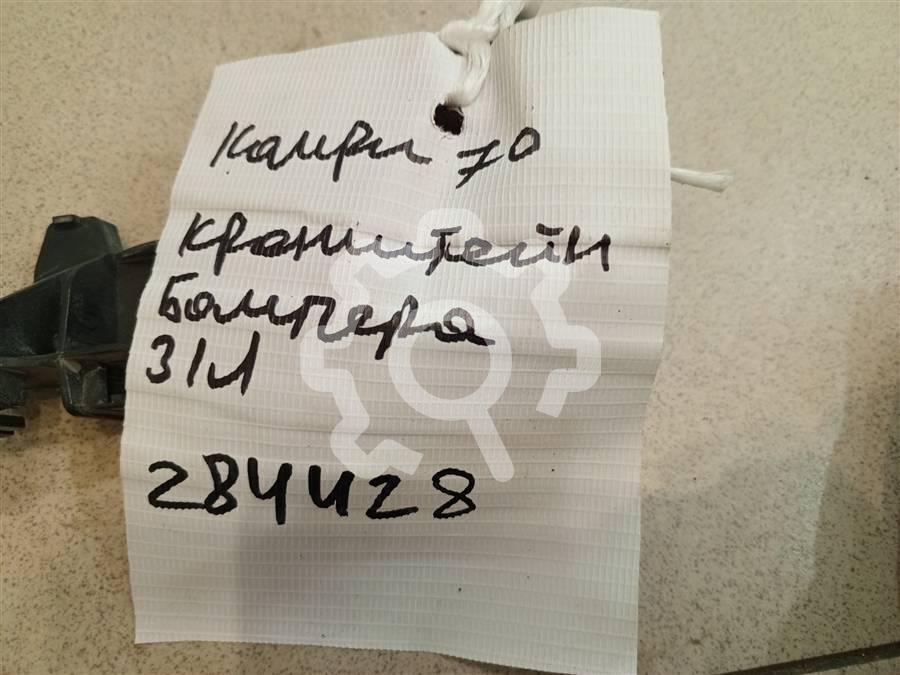 Камри 70
Кронштейн
Бампера
З/Л
284428